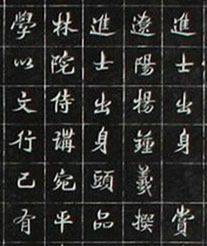 進士出身 賞
遼陽楊鍾羲撰
進士出身頭品
林院侍講宛平
學以文行己有